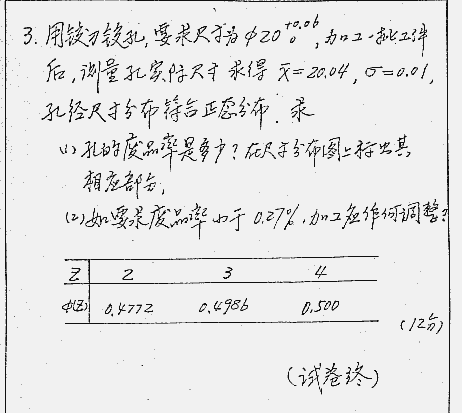 3. 用铰刀铰孔,要求尺寸为 φ20 +0.06 0 ,加工一批工件
后,测量孔实际尺寸 求得 x̄=20.04, σ=0.01,
孔径尺寸分布符合正态分布. 求
(1) 孔的废品率是多少?在尺寸分布图上标出其
相应部分,
(2) 如要求废品率小于0.27%,加工应作何调整?
Z 2 3 4
φ(Z) 0.4772 0.4986 0.500
(12分)
(试卷终)